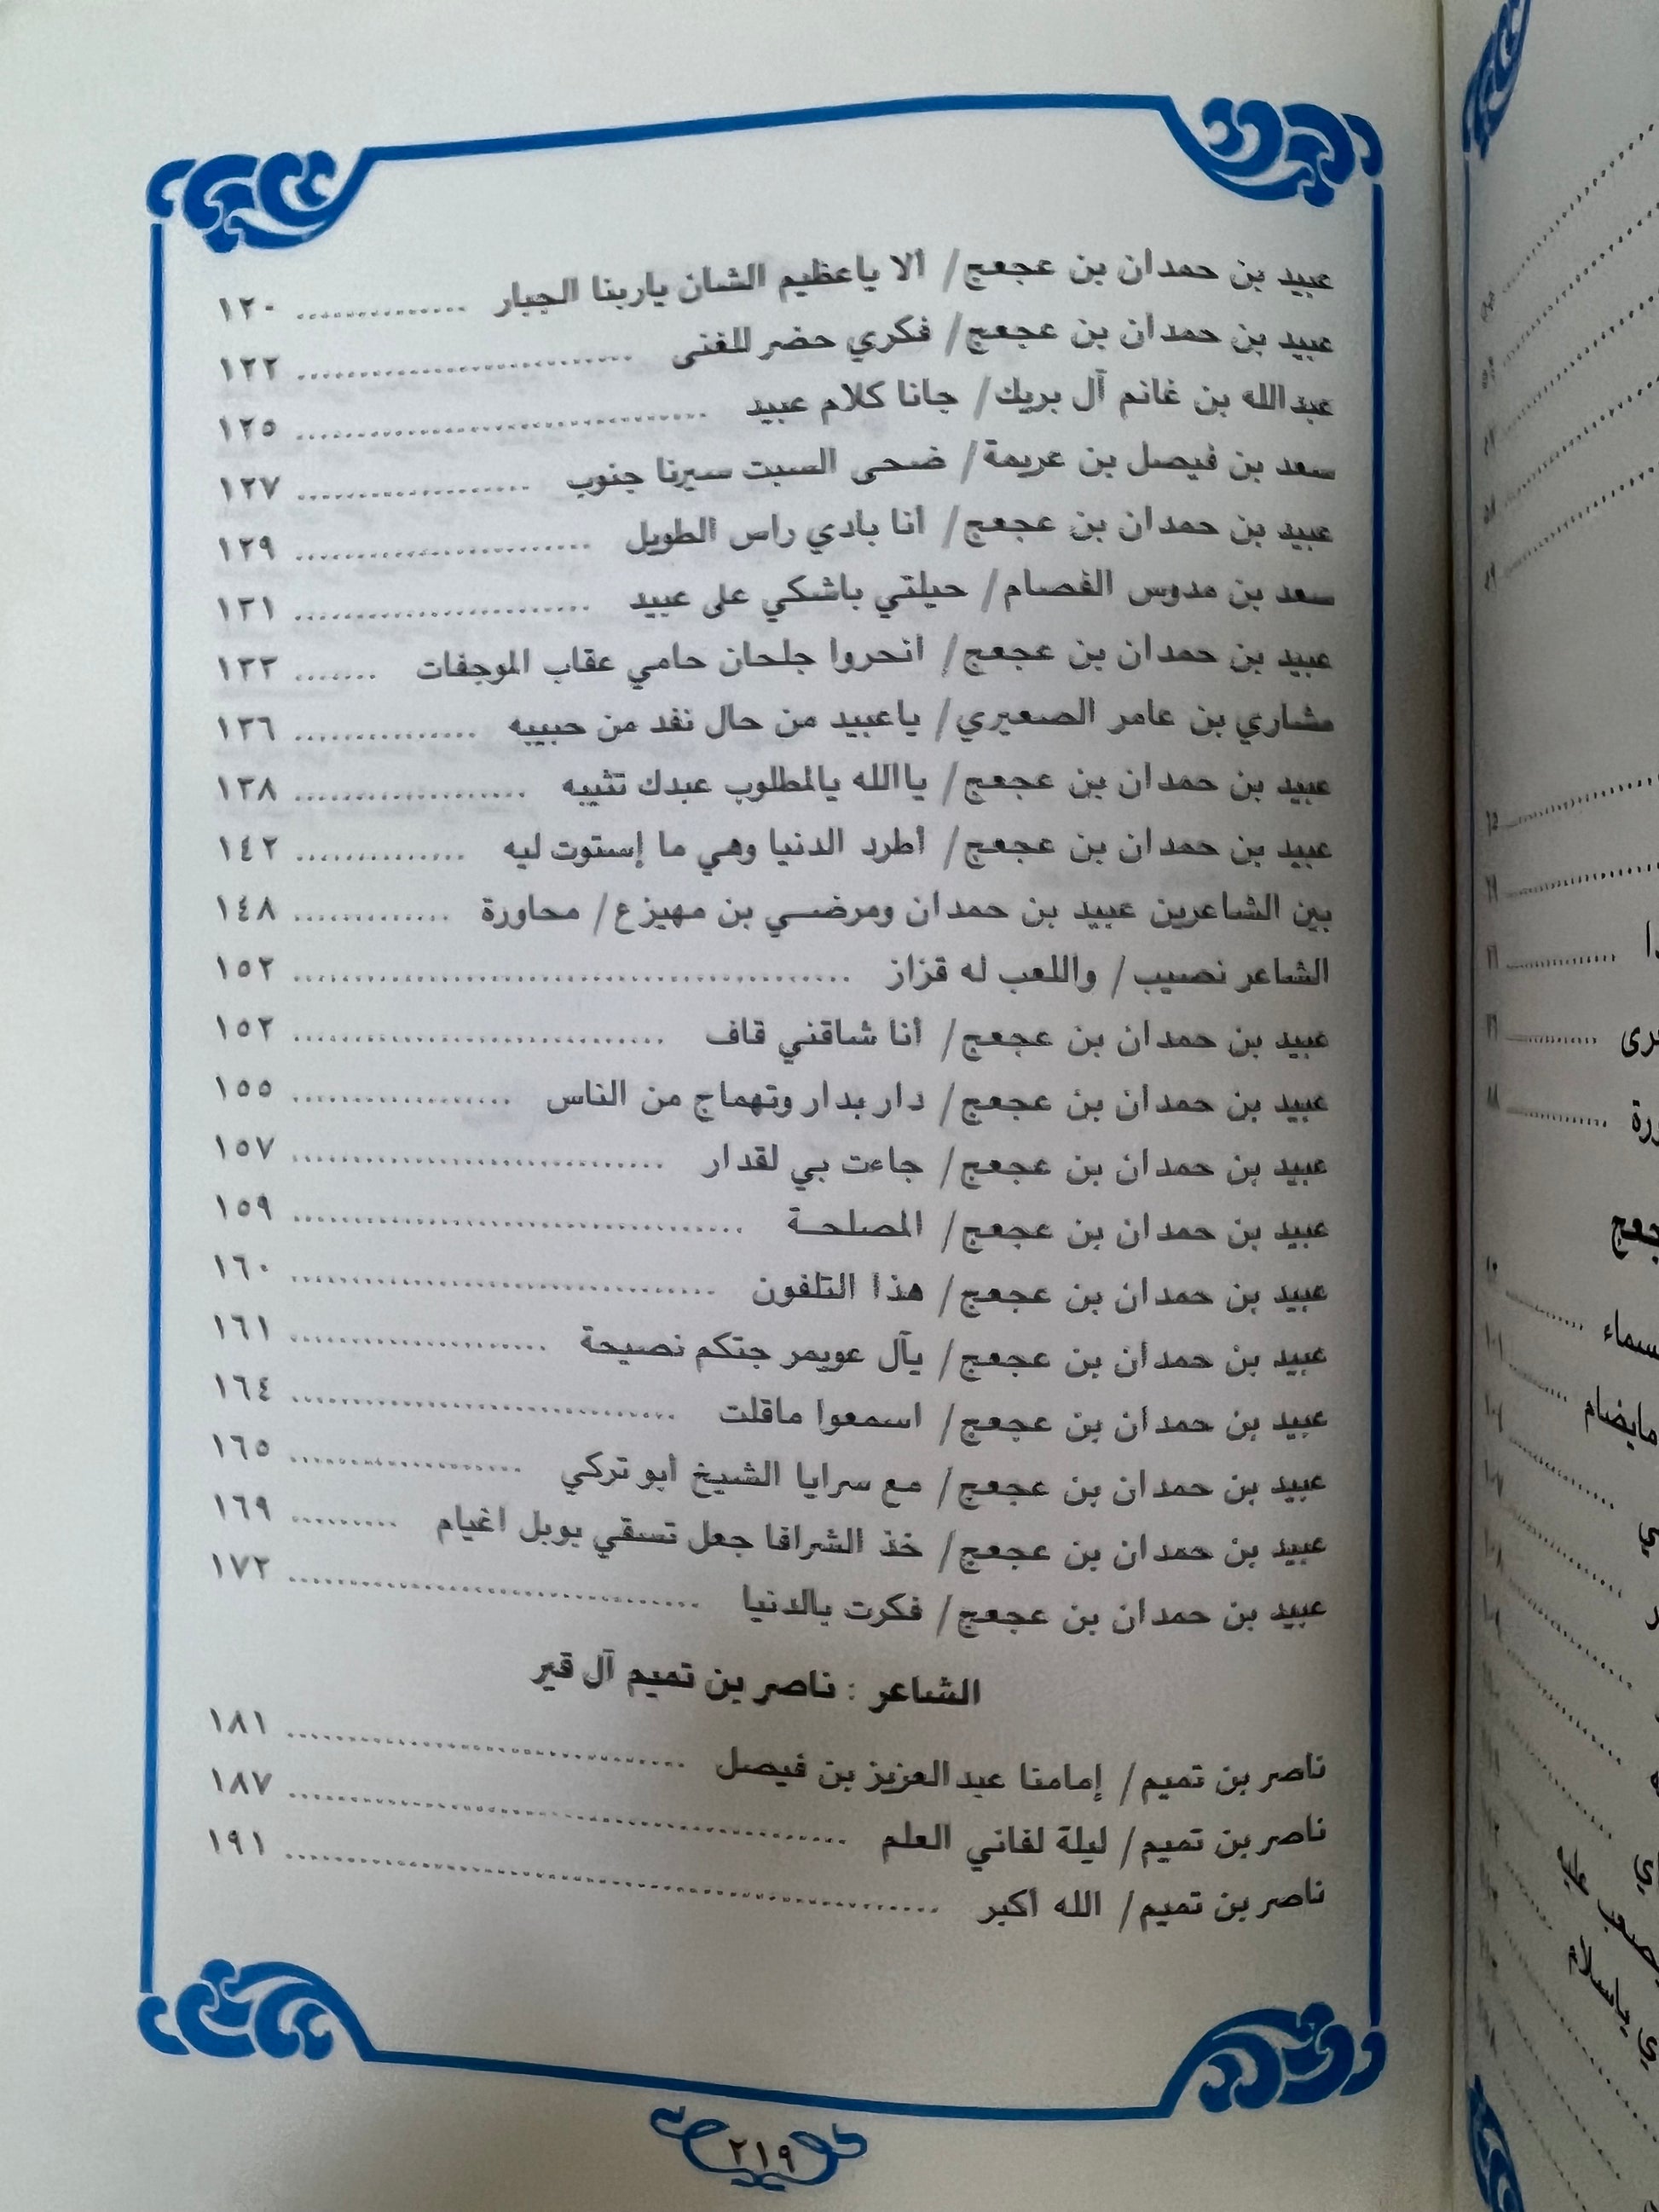 عبيد بن حمدان بن عجعج/ ألا ياعظيم الشان ياربنا الجبار ............... ١٢٠
عبيد بن حمدان بن عجعج/ فكري حضر للغنى ............... ١٢٢
عبدالله بن غانم آل بريك/ جانا كلام عبيد ............... ١٢٥
سعد بن فيصل بن عريمة/ ضحى السبت سيرنا جنوب ............... ١٢٧
عبيد بن حمدان بن عجعج/ أنا بادي راس الطويل ............... ١٢٩
سعد بن مدوس الفصام/ حيلتي باشكي على عبيد ............... ١٣١
عبيد بن حمدان بن عجعج/ انحروا جلحان حامي عقاب الموجفات ....... ١٣٣
مشاري بن عامر الصعيري/ ياعبيد من حال نفد من حبيبه ............... ١٣٦
عبيد بن حمدان بن عجعج/ ياالله يالمطلوب عبدك تثيبه ............... ١٣٨
عبيد بن حمدان بن عجعج/ أطرد الدنيا وهي ما إستوت ليه .............. ١٤٢
بين الشاعرين عبيد بن حمدان ومرضي بن مهيزع/ محاورة ............. ١٤٨
الشاعر نصيب/ واللعب له قزاز ............... ١٥٢
عبيد بن حمدان بن عجعج/ أنا شاقني قاف ............... ١٥٢
عبيد بن حمدان بن عجعج/ دار بدار وتهماج من الناس ............... ١٥٥
عبيد بن حمدان بن عجعج/ جاءت بي لقدار ............... ١٥٧
عبيد بن حمدان بن عجعج/ المصلحة ............... ١٥٩
عبيد بن حمدان بن عجعج/ هذا التلفون ............... ١٦٠
عبيد بن حمدان بن عجعج/ يآل عويمر جتكم نصيحة ............... ١٦١
عبيد بن حمدان بن عجعج/ اسمعوا ماقلت ............... ١٦٤
عبيد بن حمدان بن عجعج/ مع سرايا الشيخ أبو تركي ............... ١٦٥
عبيد بن حمدان بن عجعج/ خذ الشرافا جعل تسقي بوبل اغيام ......... ١٦٩
عبيد بن حمدان بن عجعج/ فكرت بالدنيا ............... ١٧٢
الشاعر : ناصر بن تميم آل قير
ناصر بن تميم/ إمامنا عبدالعزيز بن فيصل ............... ١٨١
ناصر بن تميم/ ليلة لفاني العلم ............... ١٨٧
ناصر بن تميم/ الله أكبر ............... ١٩١
٢١٩